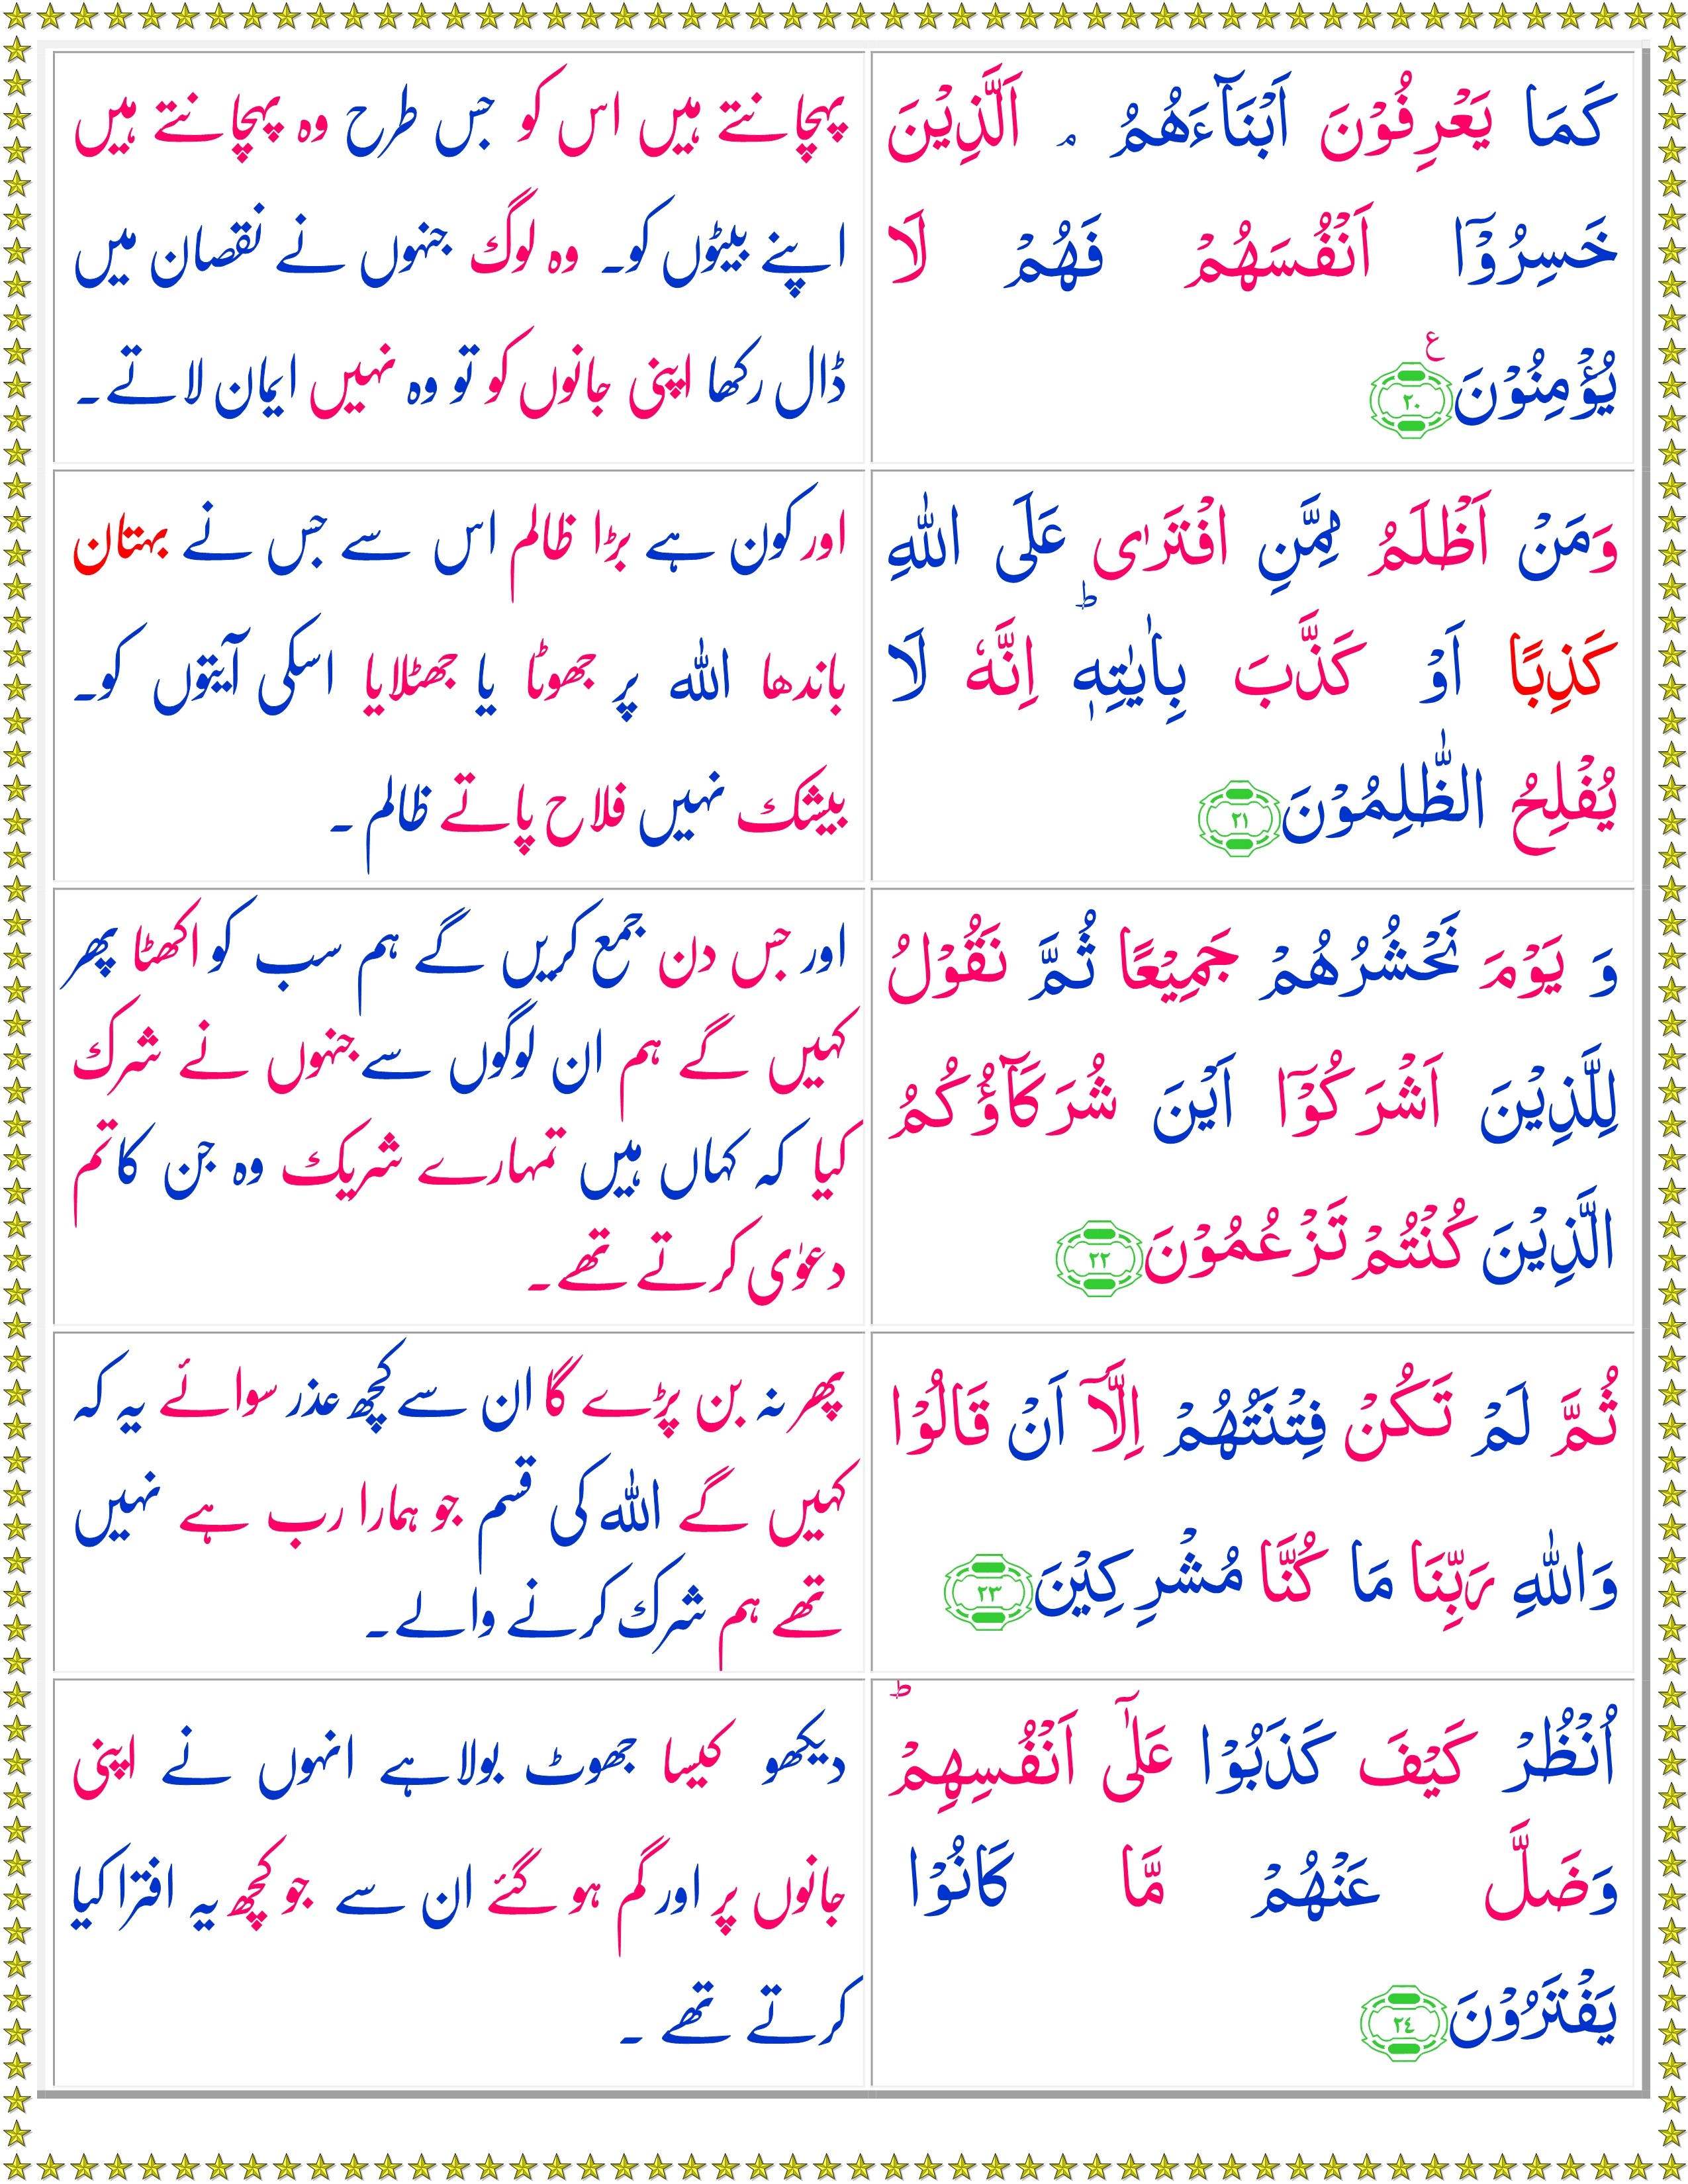 كَمَا يَعْرِفُوْنَ اَبْنَآءَهُمُ ۘ اَلَّذِيْنَ
خَسِرُوْۤا اَنْفُسَهُمْ فَهُمْ لَا
يُؤْمِنُوْنَ ع ٢٠
پہچانتے ہیں اس کو جس طرح وہ پہچانتے ہیں
اپنے بیٹوں کو۔ وہ لوگ جنہوں نے نقصان میں
ڈال رکھا اپنی جانوں کو تو وہ نہیں ایمان لاتے۔
وَمَنْ اَظْلَمُ مِمَّنِ افْتَرٰى عَلَى اللّٰهِ
كَذِبًا اَوْ كَذَّبَ بِاٰيٰتِهٖ ؕ اِنَّهٗ لَا
يُفْلِحُ الظّٰلِمُوْنَ ٢١
اور کون ہے بڑا ظالم اس سے جس نے بہتان
باندھا اللہ پر جھوٹا یا جھٹلایا اسکی آیتوں کو۔
بیشک نہیں فلاح پاتے ظالم ۔
وَ يَوْمَ نَحْشُرُهُمْ جَمِيْعًا ثُمَّ نَقُوْلُ
لِلَّذِيْنَ اَشْرَكُوْۤا اَيْنَ شُرَكَآؤُكُمُ
الَّذِيْنَ كُنْتُمْ تَزْعُمُوْنَ ٢٢
اور جس دن جمع کریں گے ہم سب کو اکھٹا پھر
کہیں گے ہم ان لوگوں سے جنہوں نے شرک
کیا کہ کہاں ہیں تمہارے شریک وہ جن کا تم
دعوٰی کرتے تھے۔
ثُمَّ لَمْ تَكُنْ فِتْنَتُهُمْ اِلَّاۤ اَنْ قَالُوْا
وَاللّٰهِ رَبِّنَا مَا كُنَّا مُشْرِكِيْنَ ٢٣
پھر نہ بن پڑے گا ان سے کچھ عذر سوائے یہ کہ
کہیں گے اللہ کی قسم جو ہمارا رب ہے نہیں
تھے ہم شرک کرنے والے۔
اُنْظُرْ كَيْفَ كَذَبُوْا عَلٰۤى اَنْفُسِهِمْ ؕ
وَضَلَّ عَنْهُمْ مَّا كَانُوْا
يَفْتَرُوْنَ ٢٤
دیکھو کیسا جھوٹ بولا ہے انہوں نے اپنی
جانوں پر اور گم ہو گئے ان سے جو کچھ یہ افترا کیا
کرتے تھے ۔